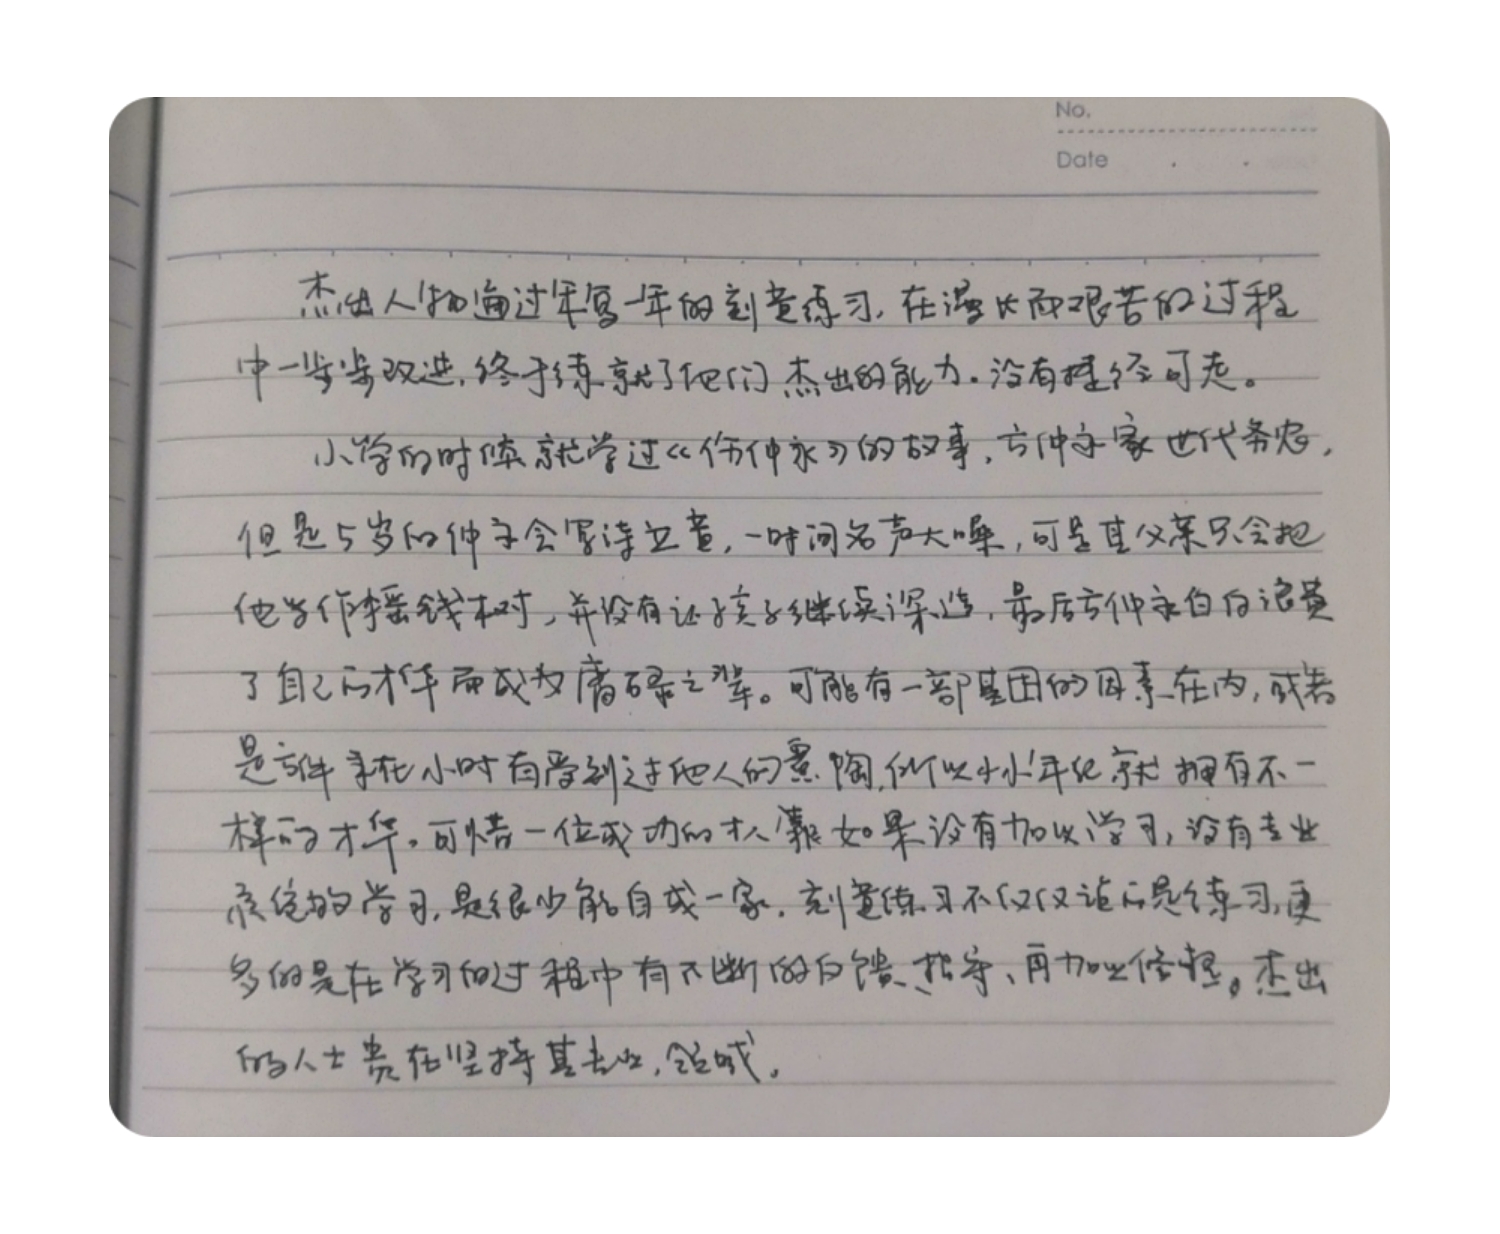 No.
Date
杰出人物通过年复一年的刻意练习，在漫长而艰苦的过程
中一步步改进，终于练就了他们杰出的能力。没有捷径可走。
小学的时候就学过《伤仲永》的故事，方仲永家世代务农，
但是5岁的仲永会写诗立意，一时间名声大噪，可是其父亲只会把
他当作摇钱树，并没有让孩子继续深造，最后方仲永白白浪费
了自己的才华而成为庸碌之辈。可能有一部基因的因素在内，或者
是方仲永在小时有受到过他人的熏陶，所以小小年纪就拥有不一
样的才华。可惜一位成功的人 如果没有加以学习，没有专业
系统的学习，是很少能自成一家。刻意练习不仅仅 的是练习，更
多的是在学习的过程中有不断的 馈、指导、再加以修整。杰出
的人士贵在坚持其专业，领域。